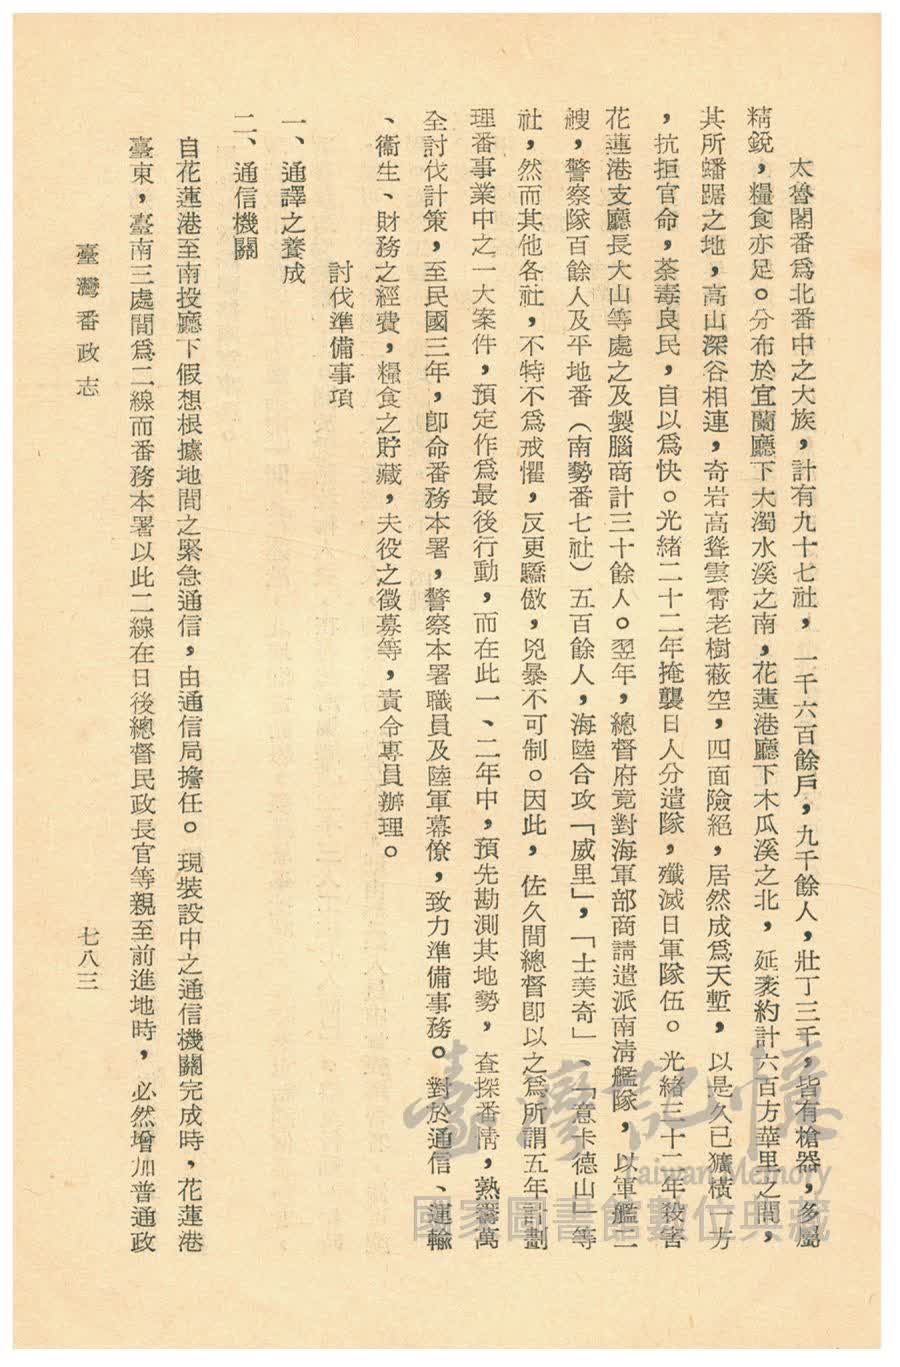 太魯閣番爲北番中之大族，計有九十七社，一千六百餘戶，九千餘人，壯丁三千，皆有槍器，多屬
精銳，糧食亦足。分布於宜蘭廳下大濁水溪之南，花蓮港廳下木瓜溪之北，延袤約計六百方華里之間，
其所蟠踞之地，高山深谷相連，奇岩高聳雲霄老樹蔽空，四面險絕，居然成爲天塹，以是久已獷橫一方
，抗拒官命，荼毒良民，自以爲快。光緒二十二年掩襲日人分遣隊，殲滅日軍隊伍。光緒三十二年殺害
花蓮港支廳長大山等處之及製腦商計三十餘人。翌年，總督府竟對海軍部商請遣派南淸艦隊，以軍艦二
艘，警察隊百餘人及平地番（南勢番七社）五百餘人，海陸合攻「威里」，「士美奇」、「意卡德山」等
社，然而其他各社，不特不爲戒懼，反更驕傲，兇暴不可制。因此，佐久間總督卽以之爲所謂五年計劃
理番事業中之一大案件，預定作爲最後行動，而在此一、二年中，預先勘測其地勢，查探番情，熟籌萬
全討伐計策，至民國三年，卽命番務本署，警察本署職員及陸軍幕僚，致力準備事務。對於通信、運輸
、衞生、財務之經費，糧食之貯藏，夫役之徵募等，責令專員辦理。
討伐準備事項
一、通譯之養成
二、通信機關
自花蓮港至南投廳下假想根據地間之緊急通信，由通信局擔任。現裝設中之通信機關完成時，花蓮港
臺東，臺南三處間爲二線而番務本署以此二線在日後總督民政長官等親至前進地時，必然增加普通政
臺灣番政志
七八三
臺灣記憶
Taiwan Memory
國家圖書館數位典藏